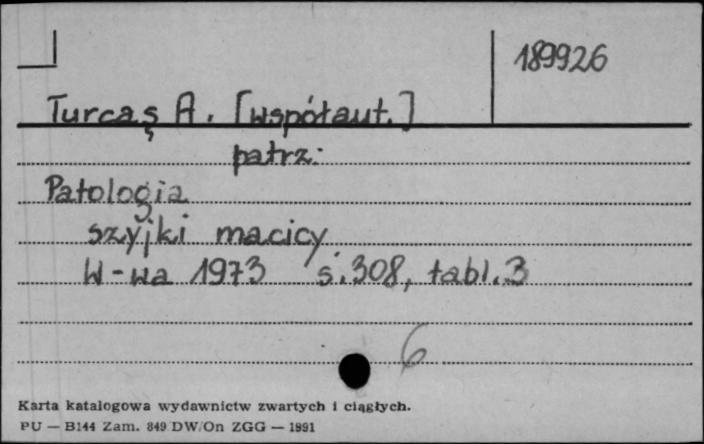 189926
Turcaș A. [współaut.]
patrz:
Patologia
szyjki macicy.
W-wa 1973 s.308, tabl.3
6
Karta katalogowa wydawnictw zwartych i ciągłych.
PU — B144 Zam. 849 DW/On ZGG — 1991